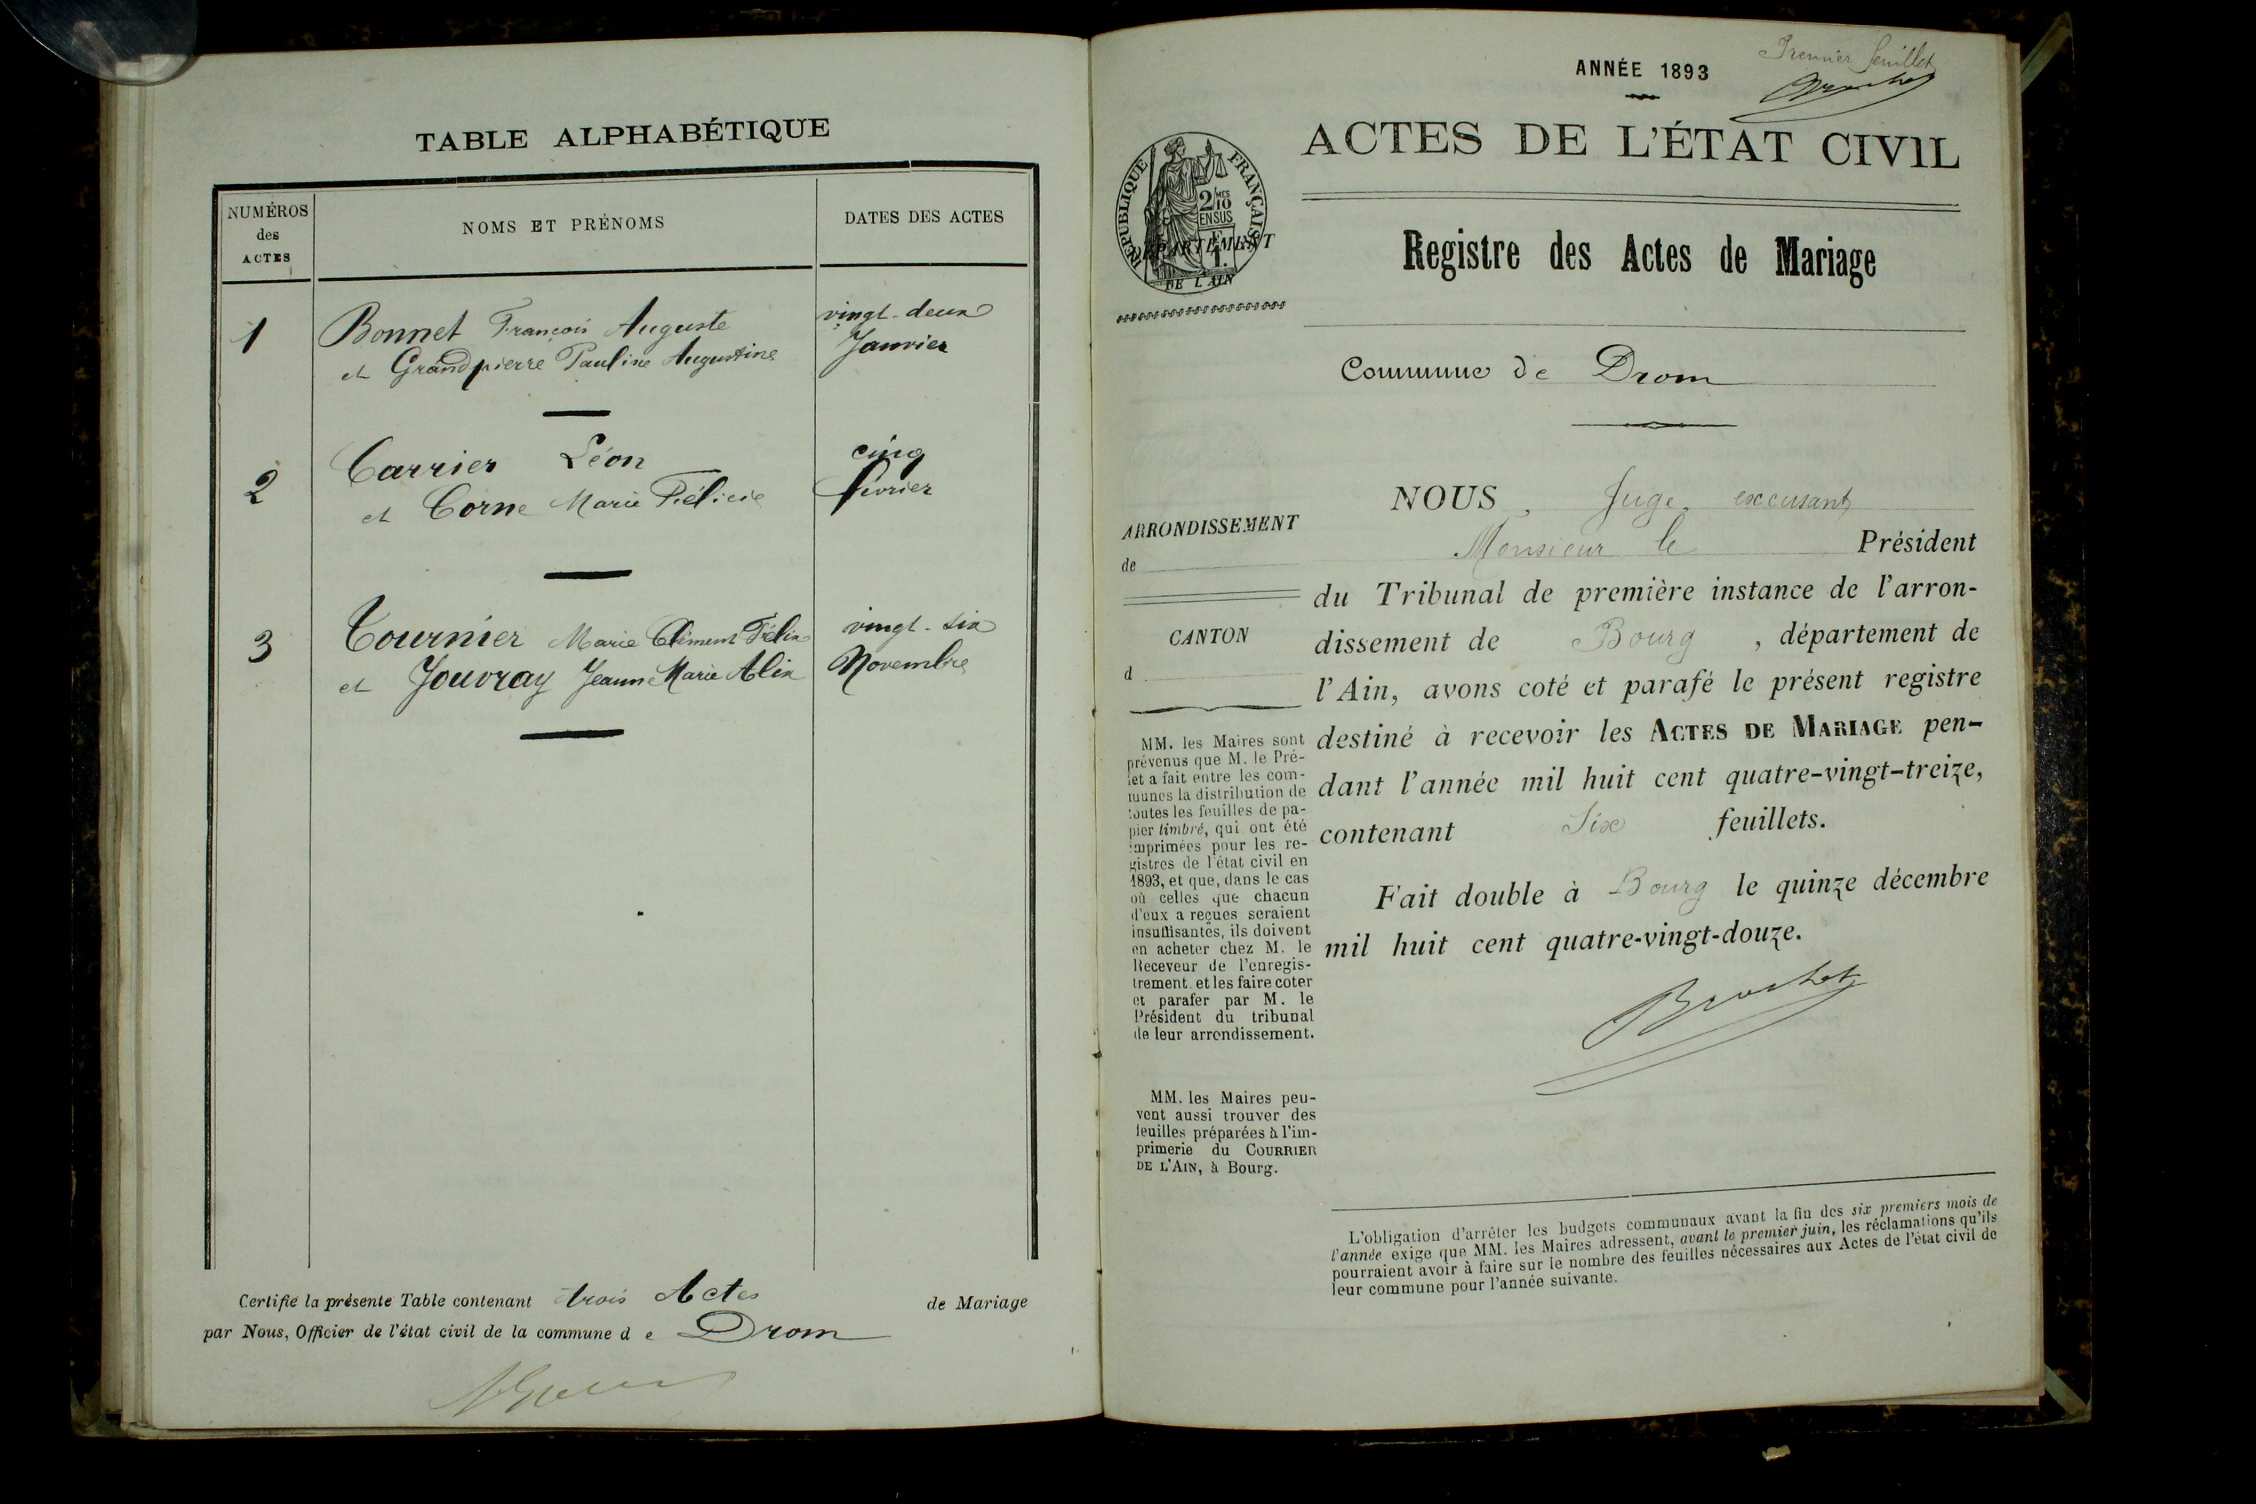 TABLE ALPHABÉTIQUE
NUMÉROS
des
ACTES
NOMS ET PRÉNOMS
DATES DES ACTES
1
Bonnet François Auguste
et Grandpierre Pauline Augustine
vingt-deux
Janvier
2
Carrier Léon
et Corne Marie Félicie
cinq
février
3
Tournier Marie Clément Félix
et Jouvray Jeanne Marie Alix
vingt-six
Novembre
Certifié la présente Table contenant trois Actes de Mariage
par Nous, Officier de l'état civil de la commune d e Drom
ANNÉE 1893
Premier feuillet
ACTES DE L'ÉTAT CIVIL
RÉPUBLIQUE FRANÇAISE
2/10 MES
EN SUS
1 F.
DÉPARTEMENT
DE L'AIN
Registre des Actes de Mariage
Commune de Drom
ARRONDISSEMENT
de
CANTON
d
MM. les Maires sont
prévenus que M. le Pré-
fet a fait entre les com-
munes la distribution de
toutes les feuilles de pa-
pier timbré, qui ont été
imprimées pour les re-
gistres de l'état civil en
1893, et que, dans le cas
où celles que chacun
d'eux a reçues seraient
insuffisantes, ils doivent
en acheter chez M. le
Receveur de l'enregis-
trement et les faire coter
et parafer par M. le
Président du tribunal
de leur arrondissement.
MM. les Maires peu-
vent aussi trouver des
feuilles préparées à l'im-
primerie du COURRIER
DE L'AIN, à Bourg.
NOUS, Juge, excusant
Monsieur le Président
du Tribunal de première instance de l'arron-
dissement de Bourg, département de
l'Ain, avons coté et parafé le présent registre
destiné à recevoir les ACTES DE MARIAGE pen-
dant l'année mil huit cent quatre-vingt-treize,
contenant Six feuillets.
Fait double à Bourg le quinze décembre
mil huit cent quatre-vingt-douze.
Brochet
L'obligation d'arrêter les budgets communaux avant la fin des six premiers mois de
l'année exige que MM. les Maires adressent, avant le premier juin, les réclamations qu'ils
pourraient avoir à faire sur le nombre des feuilles nécessaires aux Actes de l'état civil de
leur commune pour l'année suivante.